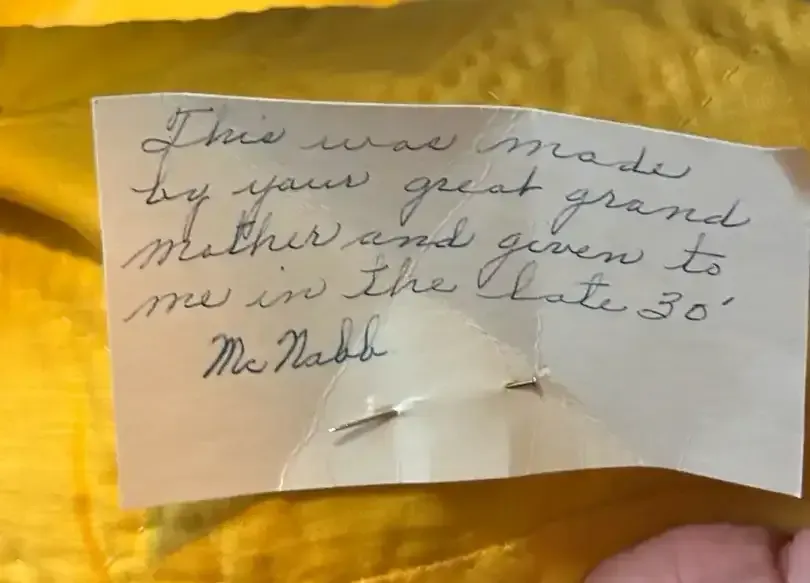 This was made
by your great grand
mother and given to
me in the late 30'
McNabb